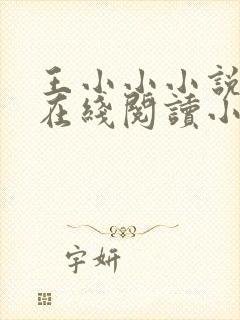 王小小小説
在綫閱讀小
字妍